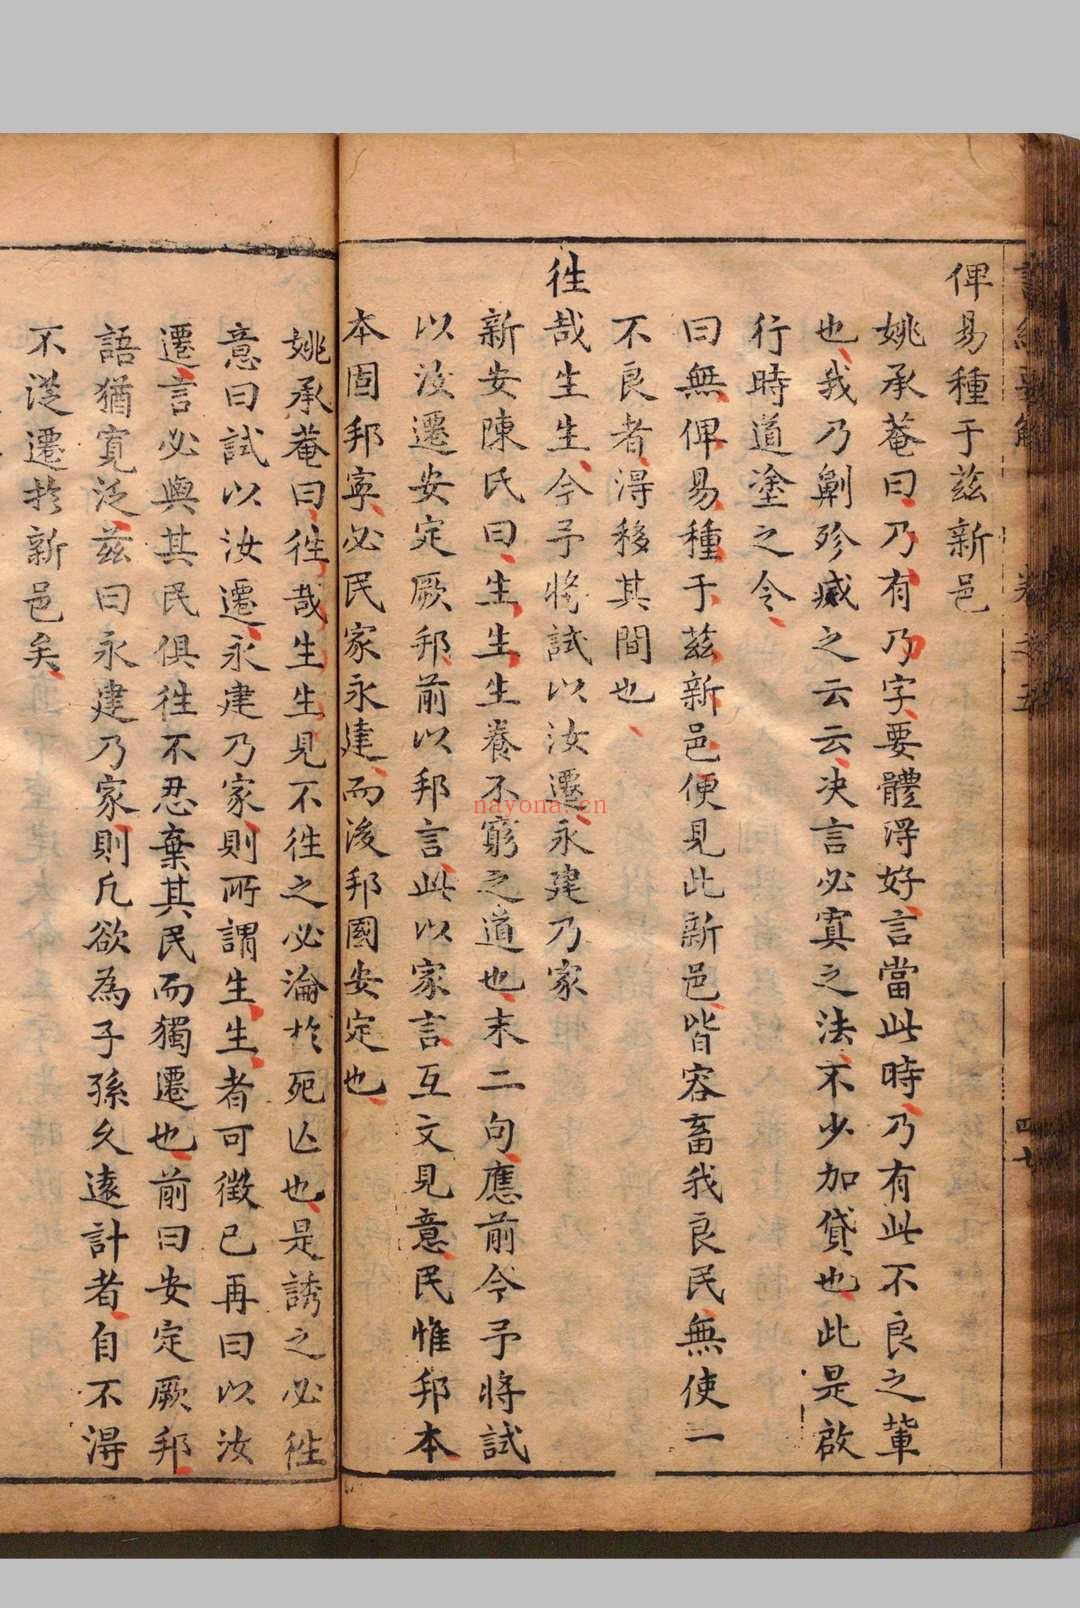 俾易種于茲新邑
姚承菴曰乃有乃字要體得好言當此時乃有此不良之輩
也我乃劓殄烕之云云决言必寘之法不少加貸也此是啟
行時道塗之令
曰無俾易種于茲新邑便見此新邑皆容畜我良民無使一
不良者得移其間也
徃哉生生今予將試以汝遷永建乃家
新安陳氏曰生生生養不窮之道也末二句應前今予將試
以汝遷安定厥邦前以邦言此以家言互文見意民惟邦本
本固邦寧必民家永建而後邦國安定也
姚承菴曰徃哉生生見不徃之必淪於死亾也是誘之必徃
意曰試以汝遷永建乃家則所謂生生者可徵已再曰以汝
遷言必與其民俱徃不忍棄其民而獨遷也前曰安定厥邦
語猶寬泛茲曰永建乃家則凡欲為子孫久遠計者自不得
不從遷於新邑矣
卷之五
四七
nayona.cn